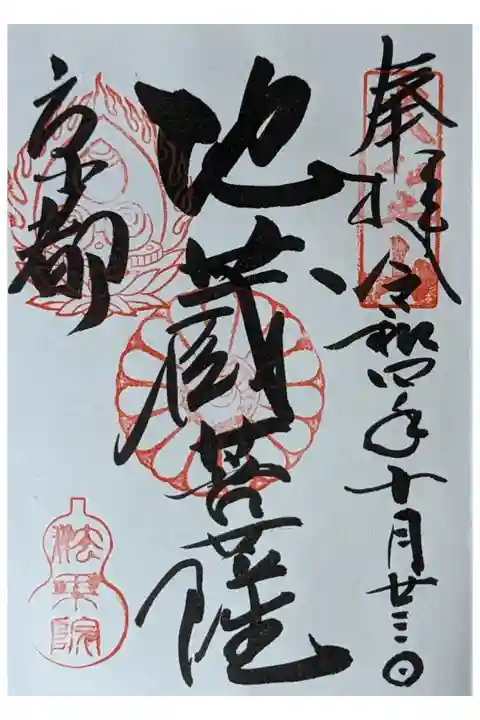 奉拝
令和四年十月廿三日
地蔵菩薩
京都
法乗院